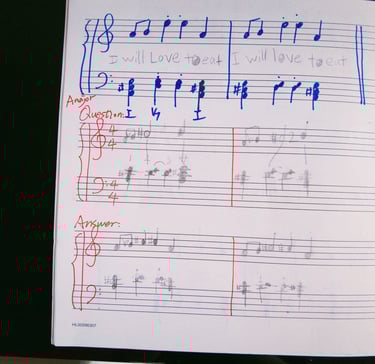 I will Love to eat I will love to eat
A major
Question: I V I
4 4
4 4
Answer:
HL00596307